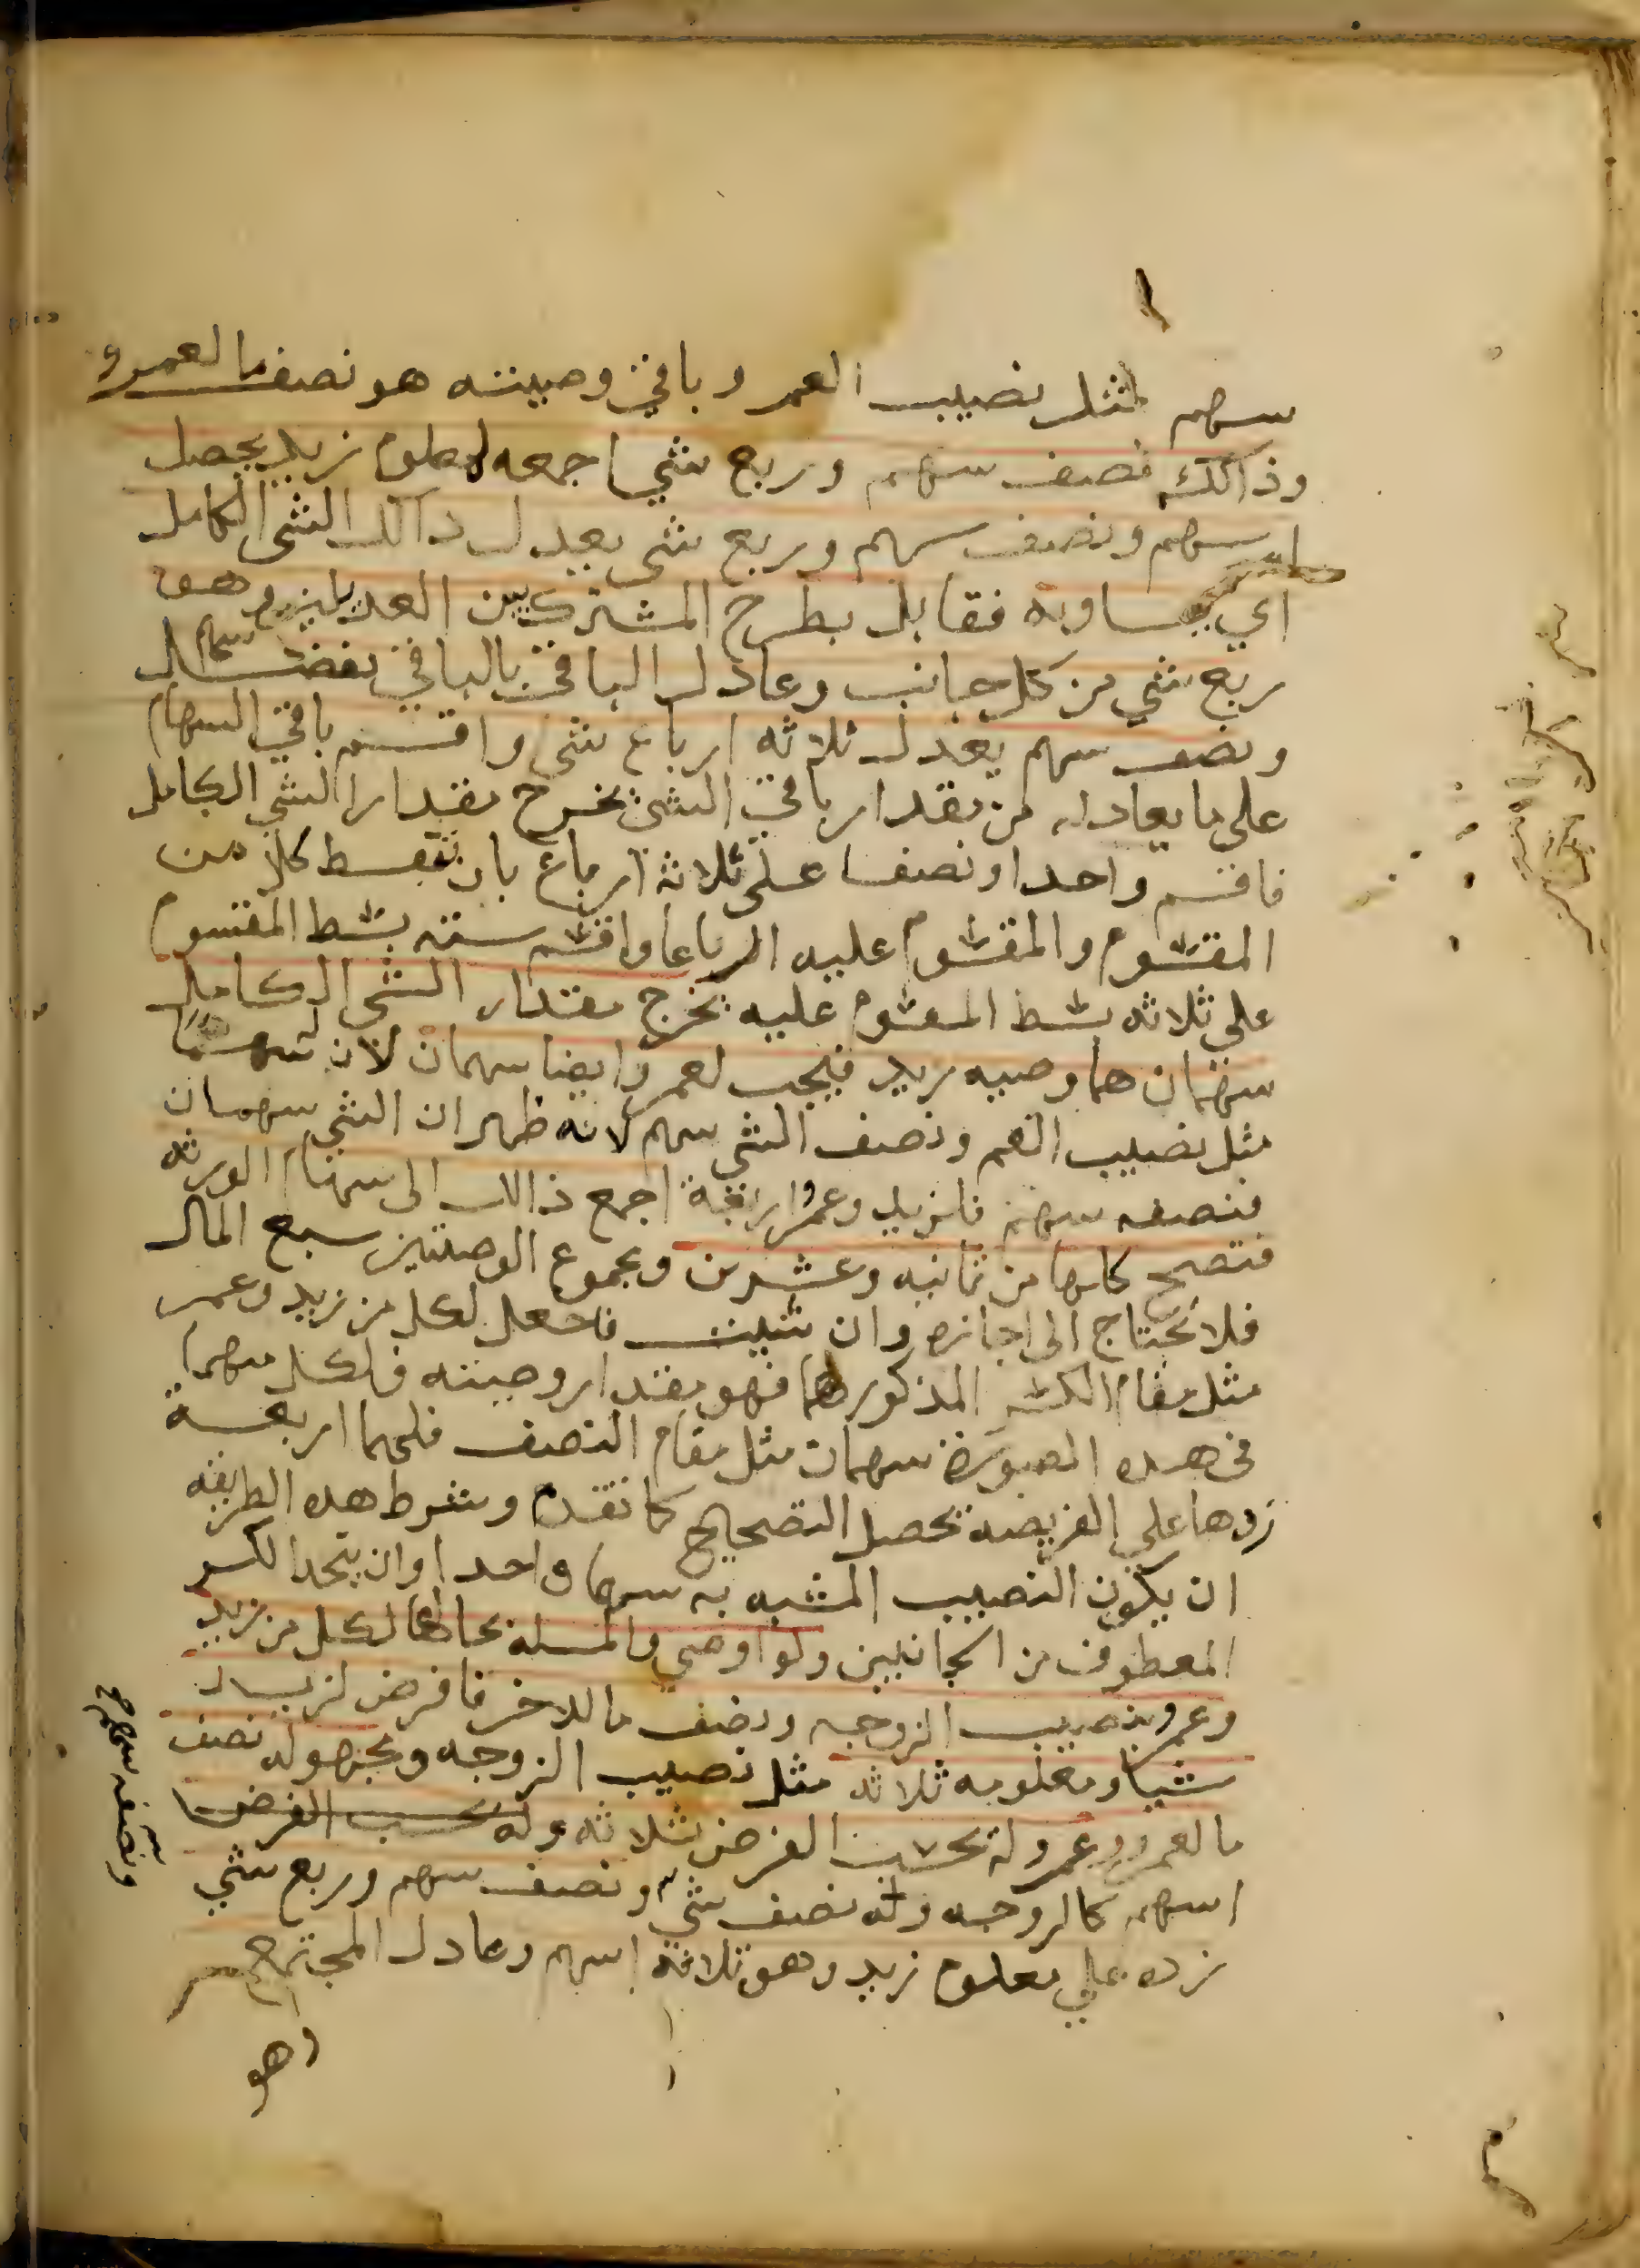 سهم لمثل نصيب العم وباقي وصيته هو نصف ما لعمرو
وذالك نصف سهم وربع شي اجمعه لمعلوم زيد يحصل
سهم ونصف سهم وربع شي يعدل ذالك الشي الكامل
اي يساويه فقابل بطرح المشترك بين العديلين وهو
ربع شي من كل جانب وعادل الباقي بالباقي
ونصف سهم يعدل ثلاثه ارباع شي واقسم باقي السهام
على ما يعادله من مقدار باقي الشي يخرج مقدار الشي الكامل
فاقسم واحدا ونصفا على ثلاثة ارباع بان تبسط كلا من
المقسوم والمقسوم عليه ارباعا واقسم سته بسط المقسوم
على ثلاثه بسط المقسوم عليه يخرج مقدار الشي الكامل
سهمان هما وصيه زيد فيجب لعمرو ايضا سهمان لان له سهما
مثل نصيب العم ونصف الشي سهم لانه ظهر ان الشي سهمان
فنصفه سهم فلزيد وعمرو اربعة اجمع ذالك الى سهام الورثه
فتصح كلها من ثمانيه وعشرين ومجموع الوصيتين سبع المال
فلا تحتاج الى اجازه وان شيت فاجعل لكل من زيد وعمر
مثل مقام الكسر المذكور لهما فهو مقدار وصيته فلكل منهما
في هذه الصورة سهمان مثل مقام النصف فلهما اربعة
زدها على الفريضه يحصل التصحيح كما تقدم وشرط هذه الطريقه
ان يكون النصيب المشبه به سهما واحدا وان يتحد الكسر
المعطوف من الجانبين ولو اوصى والمسله بحالها لكل من زيد
وعمرو بنصيب الزوجه ونصف ما للاخر فافرض لزيد
شيا ومعلومه ثلاثه مثل نصيب الزوجه ومجهوله نصف
ما لعمرو وعمرو له بحسب الفرض ثلاثه وله بحسب الفرض
اسهم كالزوجه وله نصف شي ونصف سهم وربع شي
زده على معلوم زيد وهو ثلاثة اسهم وعادل المجتمع
وهو
ونصفه سهم صح